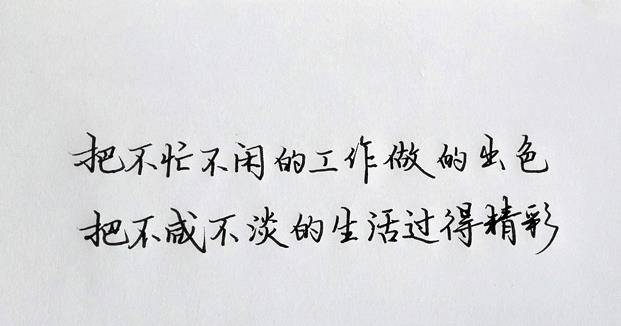 把不忙不闲的工作做的出色
把不咸不淡的生活过得精彩